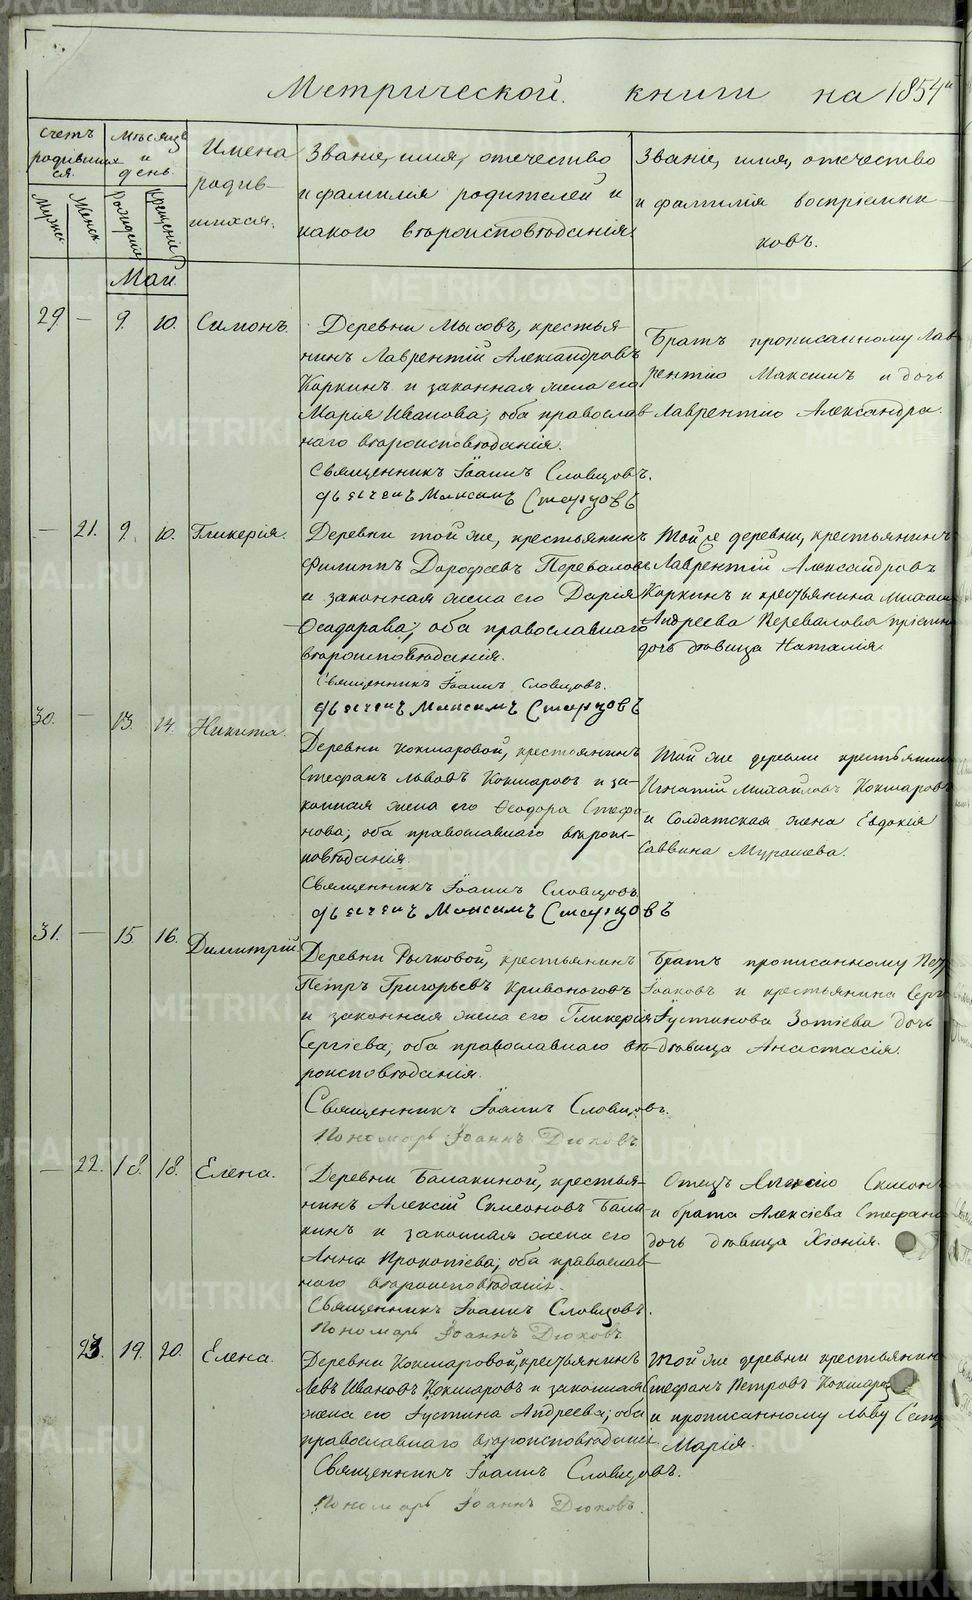 Метрической книги на 1854й
Счетъ родившихся.
Мѣсяцъ и день.
Имена родившихся.
Званіе, имя, отечество и фамилія родителей и какого вѣроисповѣданія.
Званіе, имя, отечество и фамилія воспріемниковъ.
Мужес Женск Рожденія Крещенія
Май.
29 — 9. 10. Симонъ.
Деревни Мысовъ, крестья-
нинъ Лаврентій Александровъ
Коркинъ и законная жена его
Марія Иванова; оба православ
наго вѣроисповѣданія.
Братъ прописанному Лав
рентію Максимъ и дочь
Лаврентію Александра.
Священникъ Іоаннъ Словцовъ.
Дьячекъ Максимъ Старцовъ
— 21. 9. 10. Гликерія.
Деревни той же, крестьянинъ
Филиппъ Дорофеевъ Перевалов
и законная жена его Дарія
Ѳеодорова; оба православнаго
вѣроисповѣданія.
Той же деревни, крестьянинъ
Лаврентій Александровъ
Коркинъ и крестьянина Михаи
Андреева Перевалова
дочь дѣвица Наталія.
Священникъ Іоаннъ Словцовъ.
Дьячекъ Максимъ Старцовъ
30. — 13. 14. Никита.
Деревни Кокшаровой, крестьянинъ
Стефанъ Львовъ Кокшаровъ и за-
конная жена его Ѳеодора Стефа
нова; оба православнаго вѣроис-
повѣданія.
Той же деревни крестьянинъ
Игнатій Михайловъ Кокшаровъ
и Солдатская жена Евдокія
Саввина Мурашева.
Священникъ Іоаннъ Словцовъ.
Дьячекъ Максимъ Старцовъ
31. — 15 16. Димитрій.
Деревни Рычковой, крестьянинъ
Петръ Григорьевъ Кривоноговъ
и законная жена его Гликерія
Сергіева; оба православнаго вѣ-
роисповѣданія.
Братъ прописанному Пет
Іаковъ и крестьянина Серг
Іустинова Зотіева дочь
дѣвица Анастасія.
Священникъ Іоаннъ Словцовъ.
Пономарь Іоаннъ Дюковъ.
— 22. 18. 18. Елена.
Деревни Балакиной, крестья-
нинъ Алексій Симеоновъ Бала
кинъ и законная жена его
Анна Прокопіева; оба православ-
наго вѣроисповѣданія.
Отецъ Алексію Симеонъ
и брата Алексіева Стефана
дочь дѣвица Хіонія.
Священникъ Іоаннъ Словцовъ.
Пономарь Іоаннъ Дюковъ.
23. 19. 20. Елена.
Деревни Кокшаровой, крестьянинъ
Левъ Ивановъ Кокшаровъ и законная
жена его Іустина Андреева; оба
православнаго вѣроисповѣданія.
Той же деревни крестьянинъ
Стефанъ Петровъ Кокшаро
и прописанному Льву Сест
Марія.
Священникъ Іоаннъ Словцовъ.
Пономарь Іоаннъ Дюковъ.
METRIKI.GASO-URAL.RU